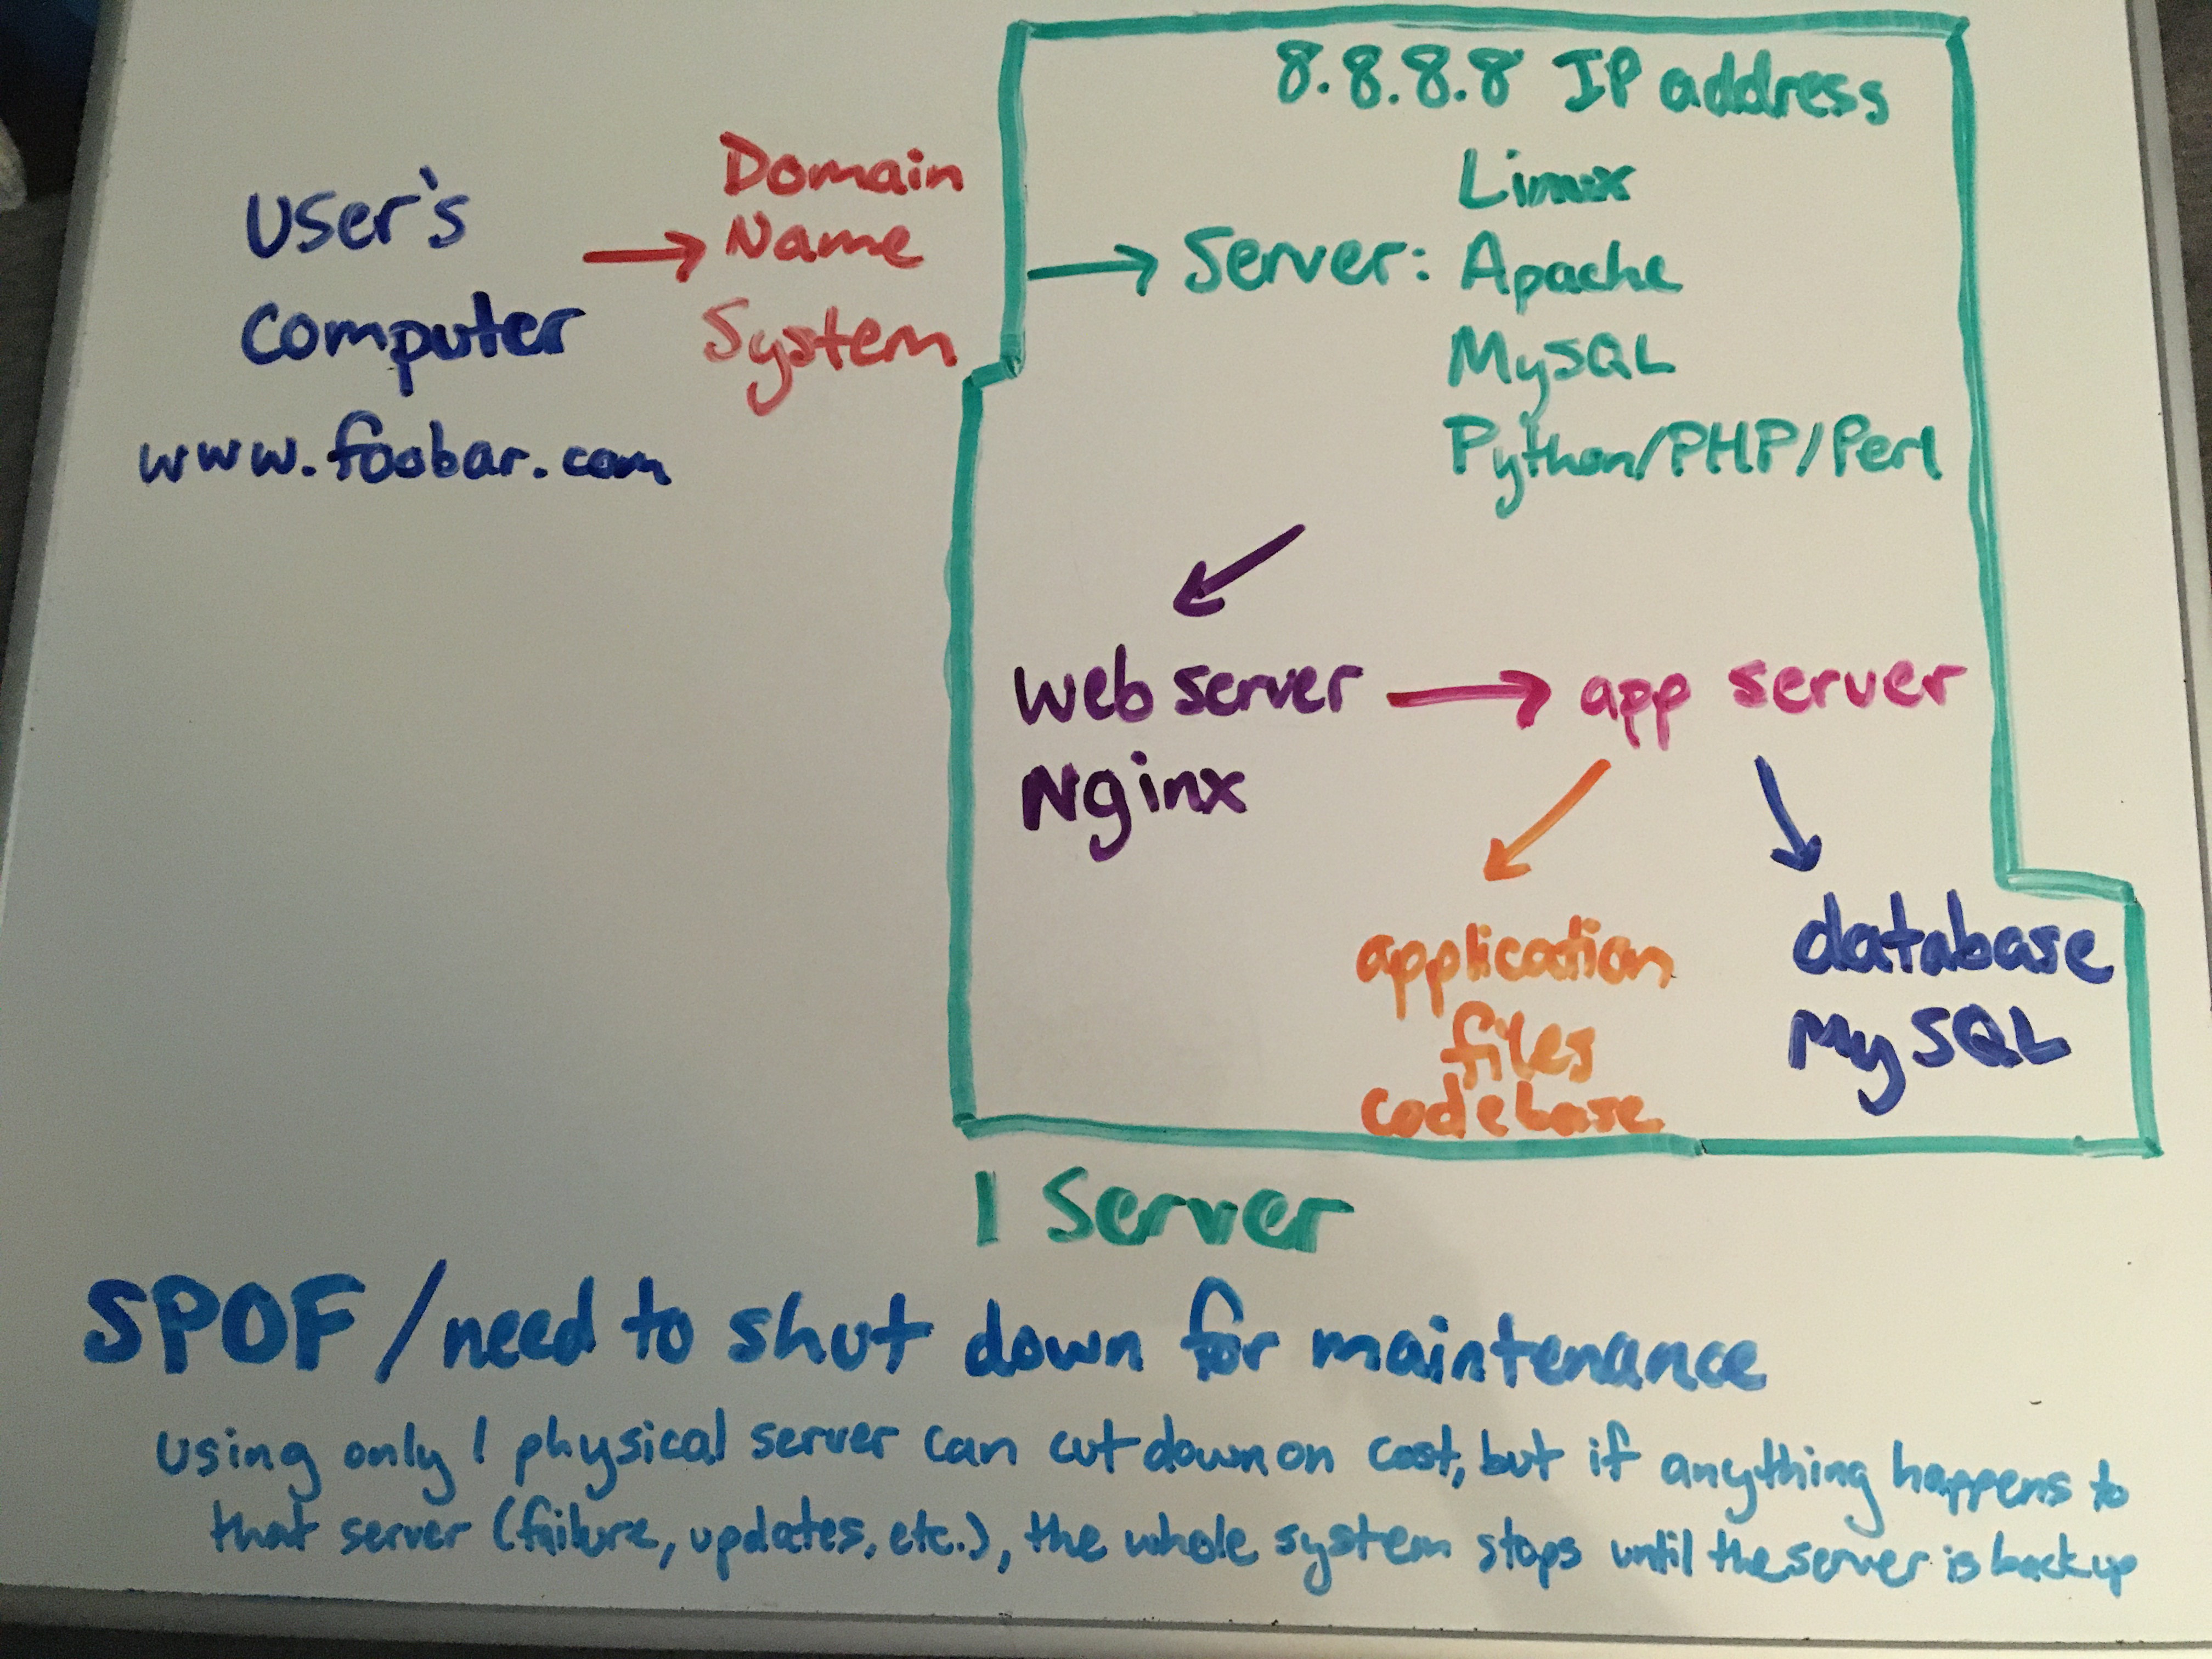 User's
Computer
www.foobar.com
→ Domain
Name
System
8.8.8.8 IP address
Linux
→ Server: Apache
MySQL
Python/PHP/Perl
Web server → app server
Nginx
application
files
code base
database
MySQL
1 Server
SPOF/need to shut down for maintenance
using only 1 physical server can cut down on cost, but if anything happens to
that server (failure, updates, etc.), the whole system stops until the server is back up